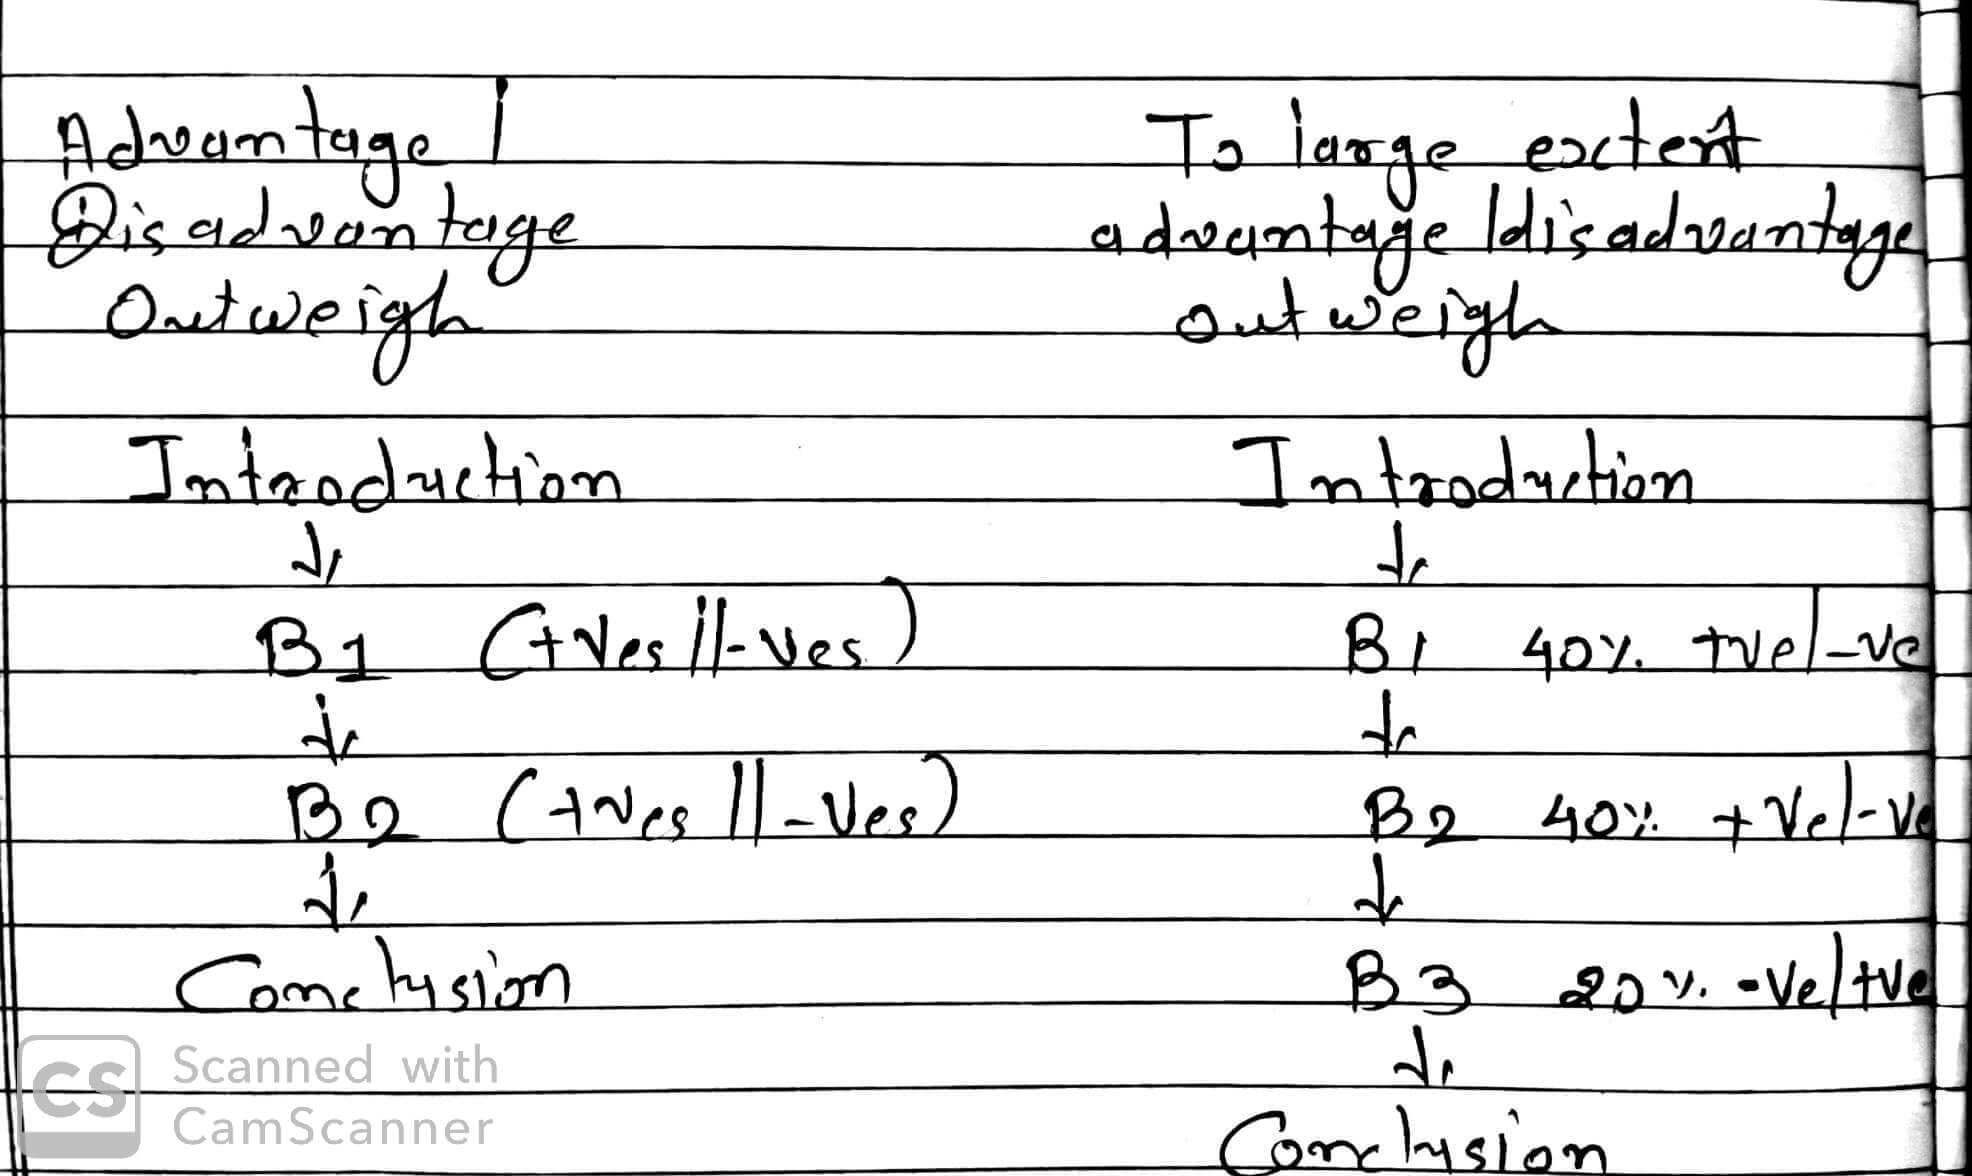 Advantage /
Disadvantage
Outweigh
Introduction
↓
B1 (+ves // -ves)
↓
B2 (+ves // -ves)
↓
Conclusion
To large extent
advantage / disadvantage
outweigh
Introduction
↓
B1 40% +ve/-ve
↓
B2 40% +ve/-ve
↓
B3 20% -ve/+ve
↓
Conclusion
CS
Scanned with
CamScanner